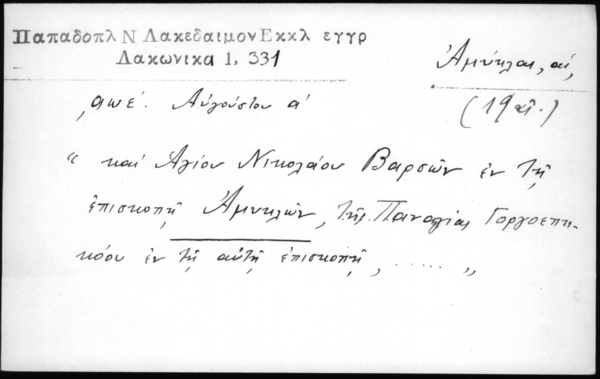 Παπαδοπλ Ν Λακεδαιμον Εκκλ εγγρ
Λακωνικα 1, 331
Ἀμύκλαι, αἱ,
(19 αἰ.)
͵αωε΄. Αὐγούστου α΄
" καί Ἁγίου Νικολάου Βαρσῶν ἐν τῇ
ἐπισκοπῇ Ἀμυκλῶν, τῆς Παναγίας Γοργοεπη-
κόου ἐν τῇ αὐτῇ ἐπισκοπῇ, ...... "